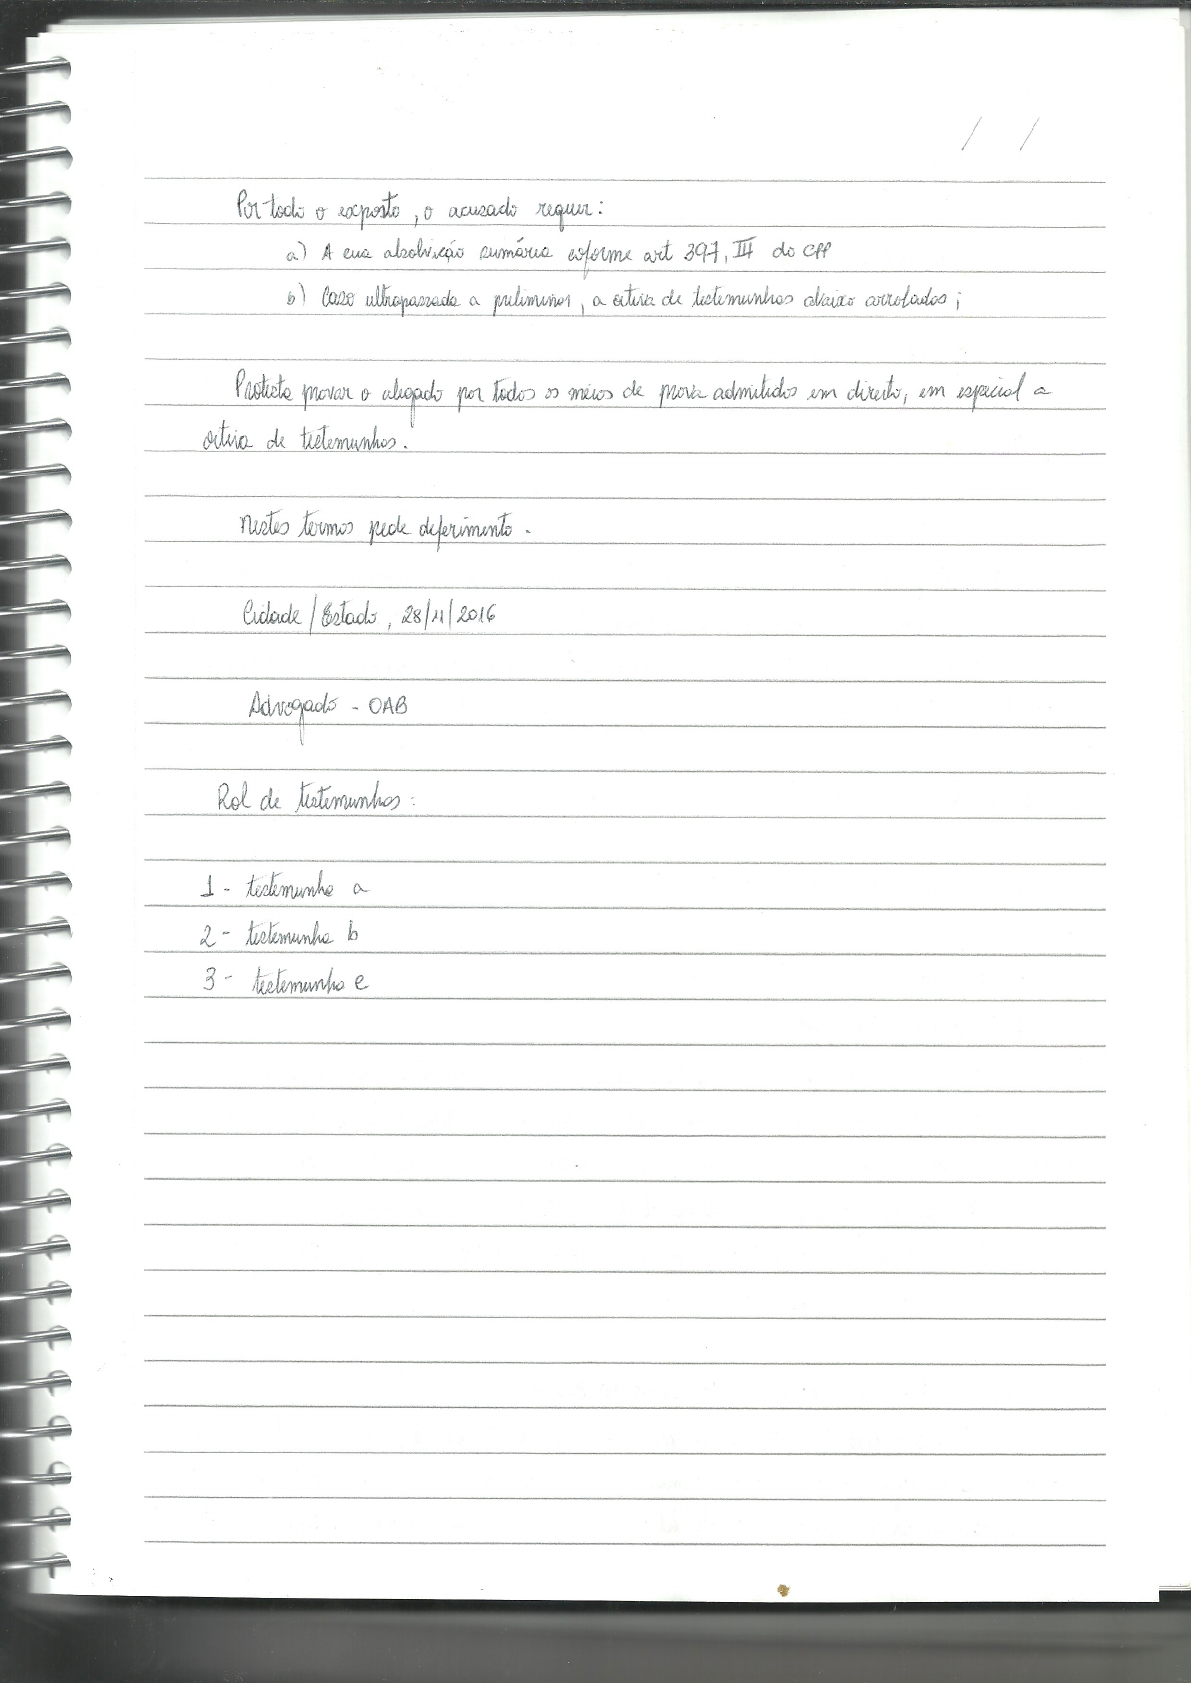 / /
Por todo o exposto, o acusado requer:
a) A sua absolvição sumária conforme art 397, III do CPP
b) Caso ultrapassada a preliminar, a oitiva de testemunhas abaixo arroladas;
Protesta provar o alegado por todos os meios de prova admitidos em direito, em especial a
oitiva de testemunhas.
Nestes termos pede deferimento.
Cidade/Estado, 28/11/2016
Advogado - OAB
Rol de testemunhas:
1 - testemunha a
2 - testemunha b
3 - testemunha c